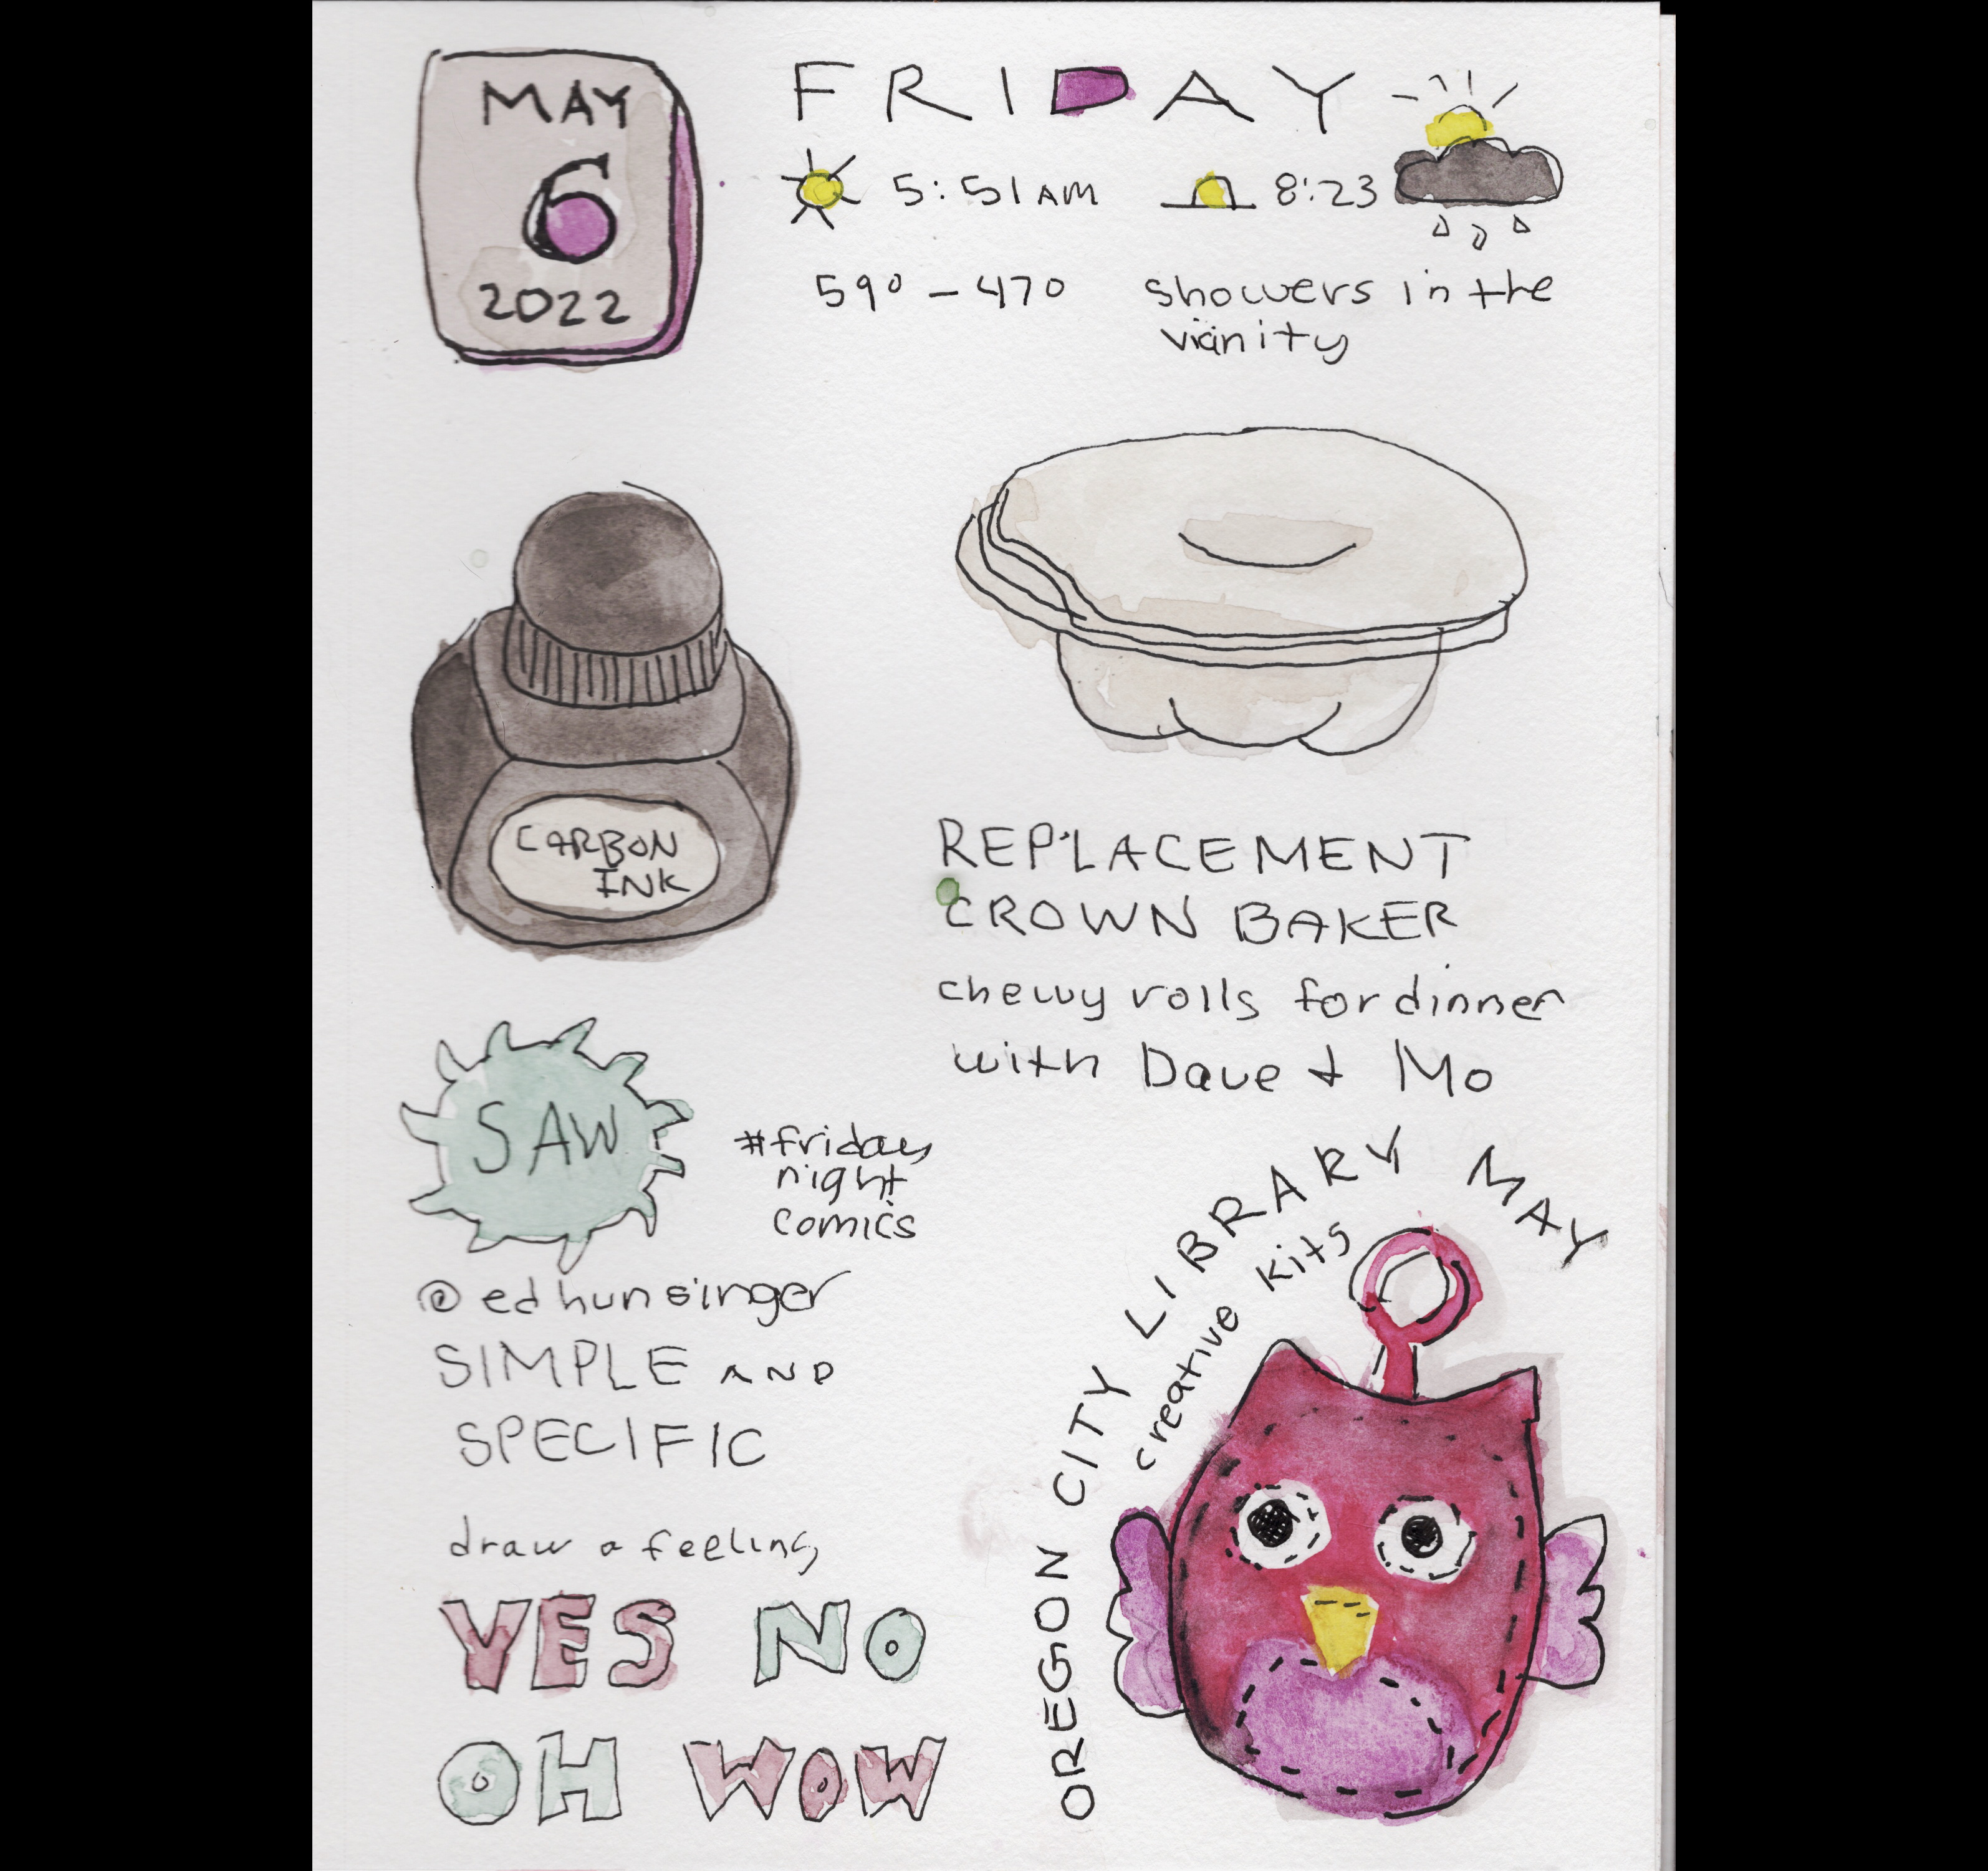 MAY
6
2022
FRIDAY
5:51 AM
8:23
59° - 47°
showers in the
vicinity
CARBON
INK
REPLACEMENT
CROWN BAKER
chewy rolls for dinner
with Dave + Mo
SAW
#friday
night
comics
@edhunsinger
SIMPLE AND
SPECIFIC
draw a feeling
YES NO
OH WOW
OREGON CITY LIBRARY MAY
creative kits